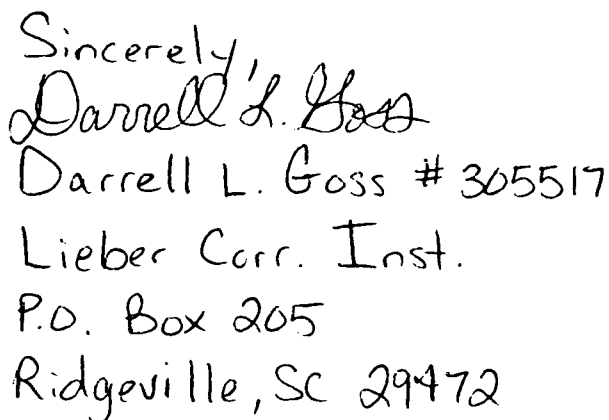 Sincerely,
Darrell L. Goss
Darrell L. Goss # 305517
Lieber Corr. Inst.
P.O. Box 205
Ridgeville, SC 29472